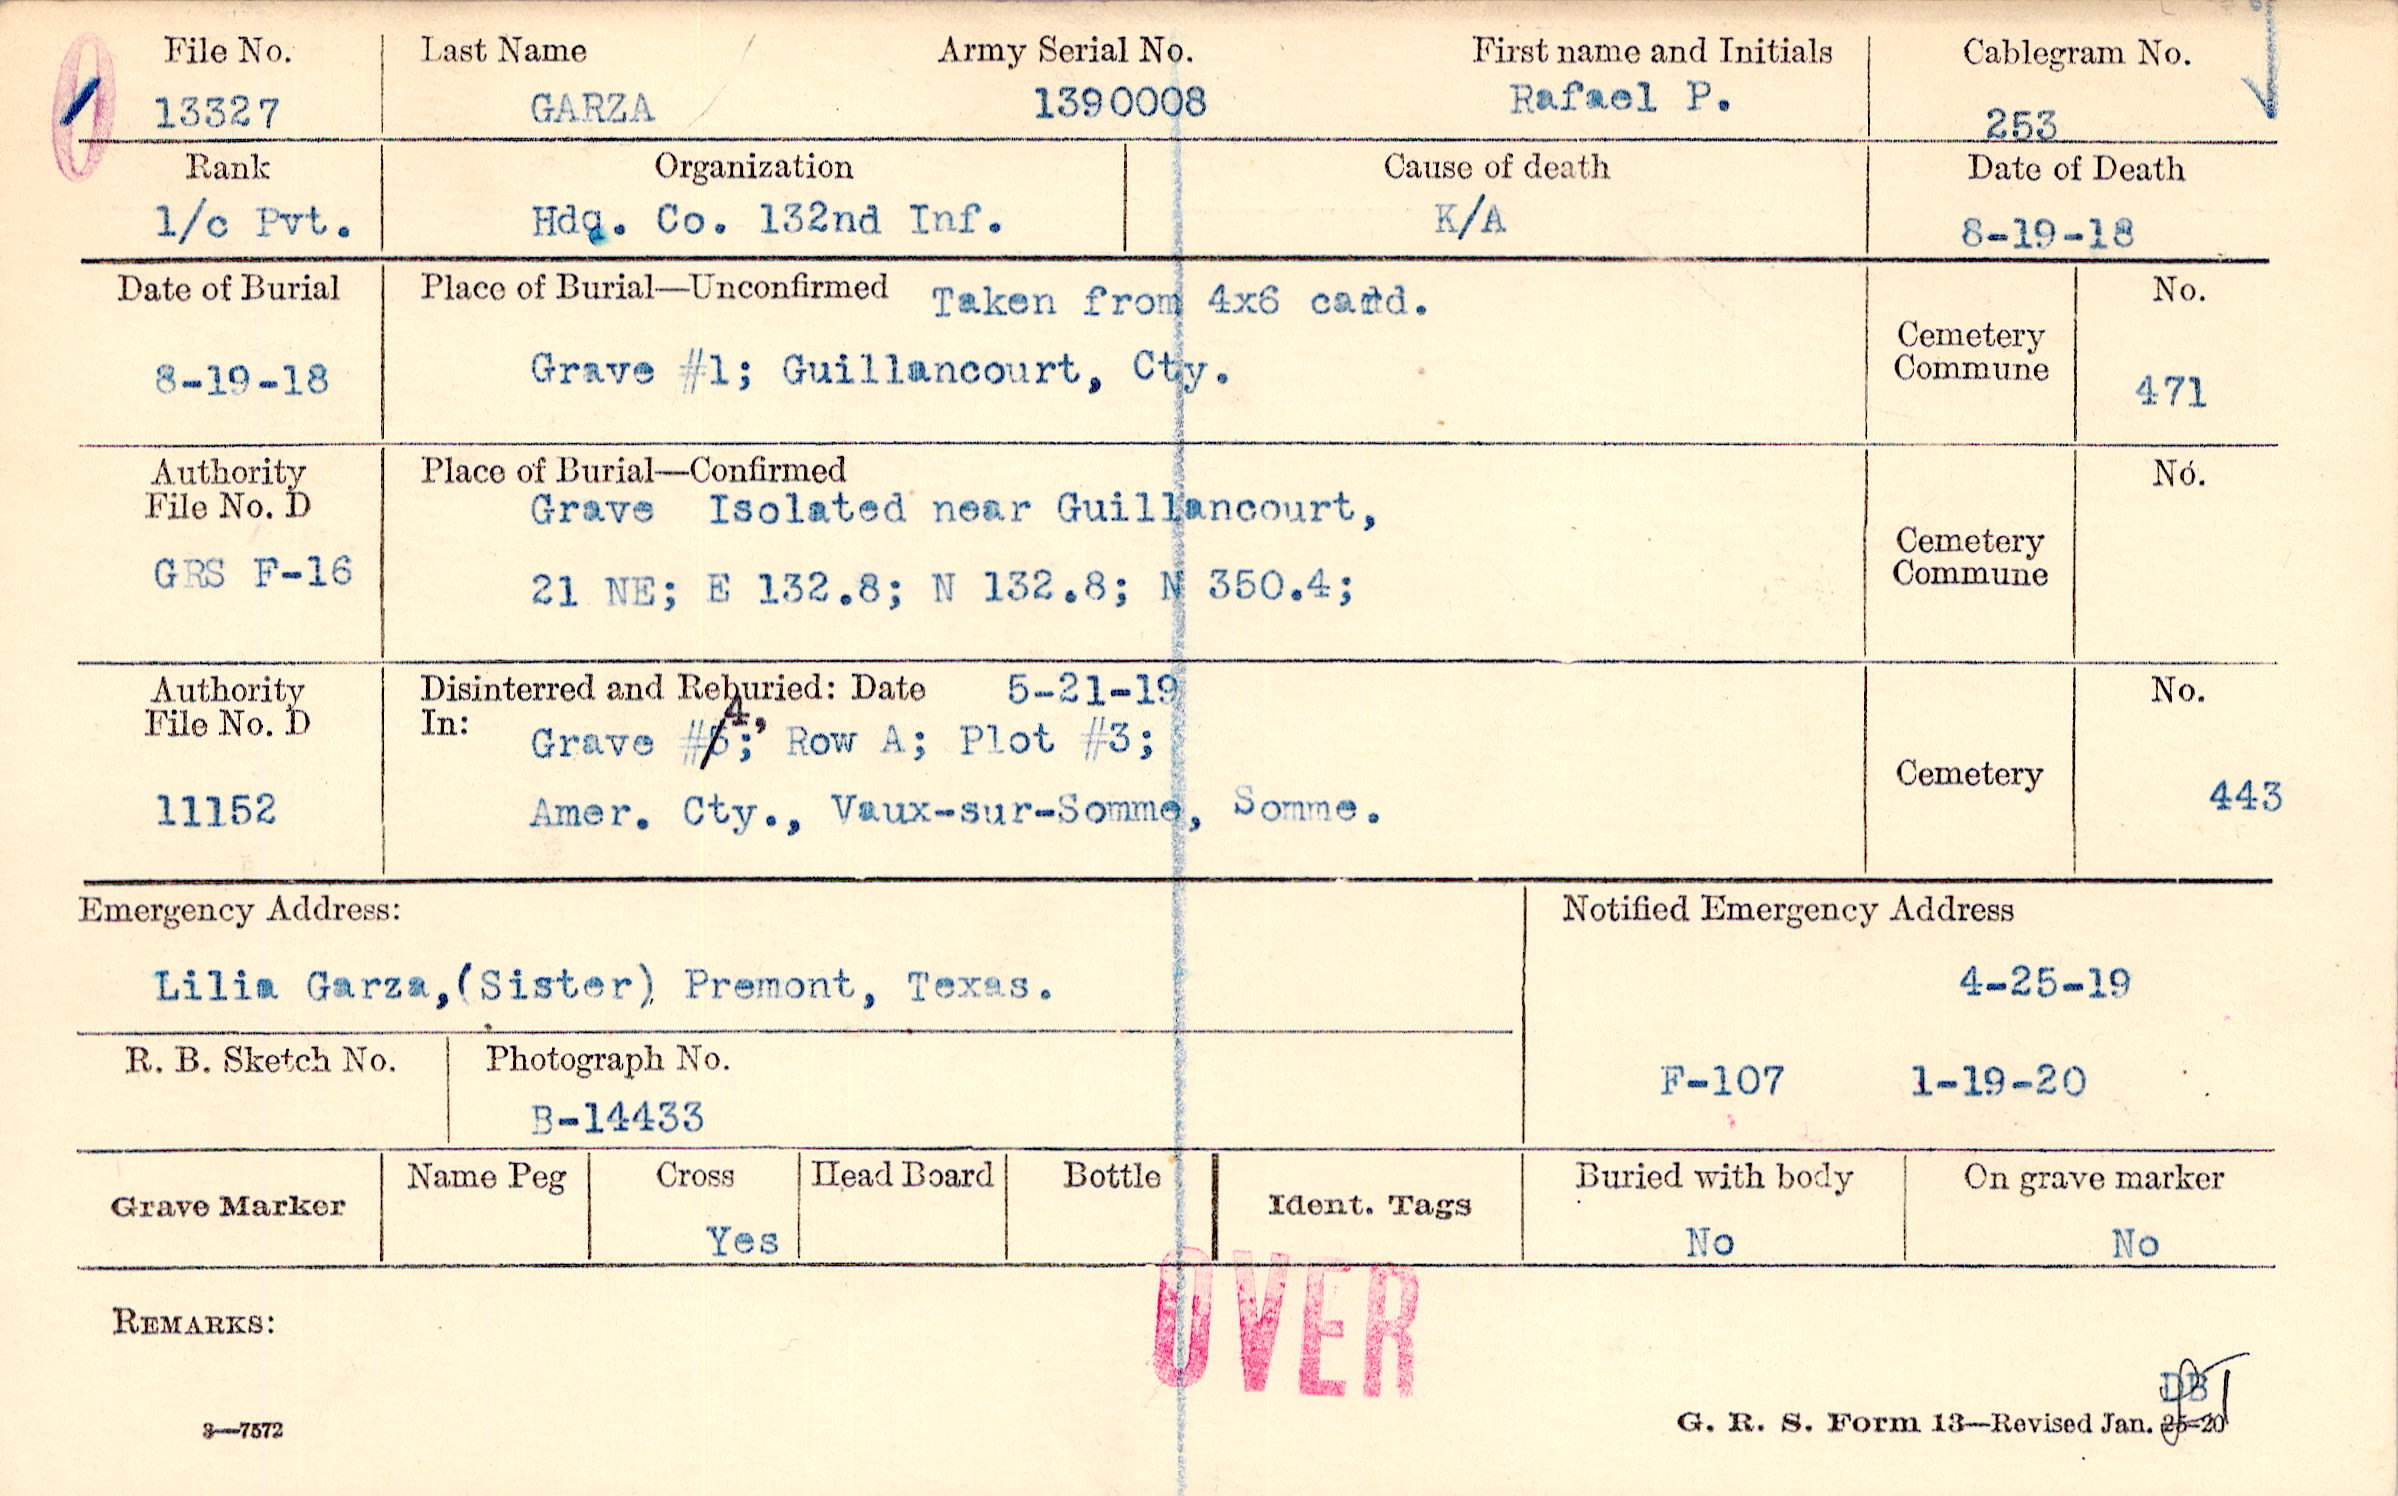 File No. Last Name Army Serial No. First name and Initials Cablegram No.
13327 GARZA 1390008 Rafael P. 253
Rank Organization Cause of death Date of Death
1/c Pvt. Hdq. Co. 132nd Inf. K/A 8-19-18
Date of Burial Place of Burial—Unconfirmed Taken from 4x6 card. No.
Cemetery
Commune
8-19-18 Grave #1; Guillancourt, Cty. 471
Authority Place of Burial—Confirmed No.
File No. D Grave Isolated near Guillancourt,
Cemetery
Commune
GRS F-16 21 NE; E 132.8; N 132.8; N 350.4;
Authority Disinterred and Reburied: Date 5-21-19 No.
File No. D In: Grave #5; 4, Row A; Plot #3;
Cemetery
11152 Amer. Cty., Vaux-sur-Somme, Somme. 443
Emergency Address: Notified Emergency Address
Lilia Garza,(Sister) Premont, Texas. 4-25-19
R. B. Sketch No. Photograph No. F-107 1-19-20
B-14433
Grave Marker Name Peg Cross Head Board Bottle Ident. Tags Buried with body On grave marker
Yes No No
OVER
REMARKS:
DB
3—7572 G. R. S. Form 13—Revised Jan. 25-20